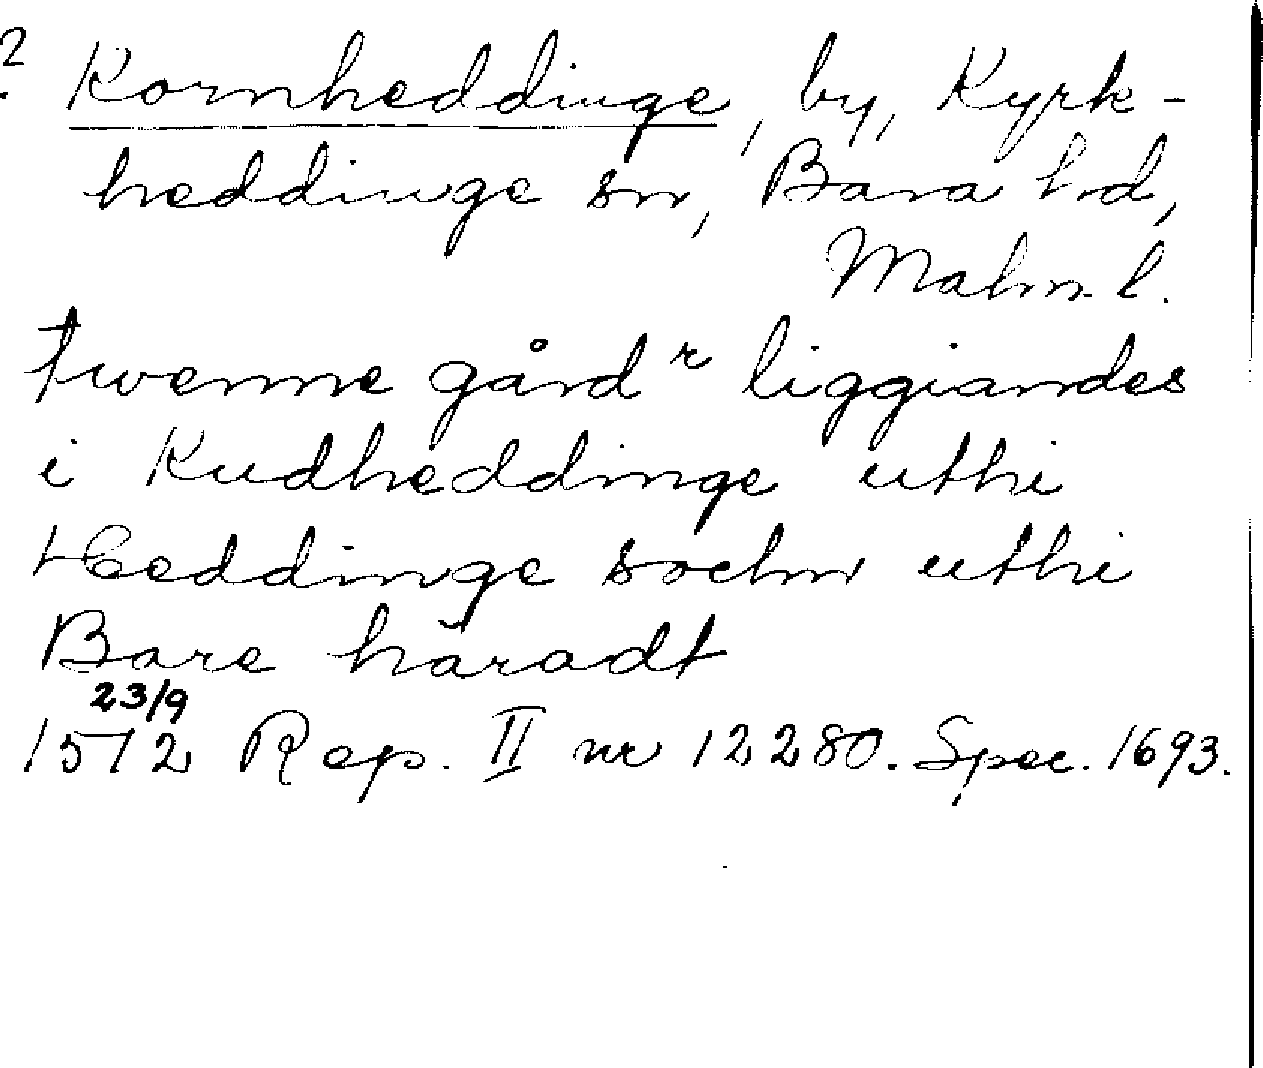 ? Kornheddinge, by, Kyrk-
heddinge sn, Bara hd,
Malm. l.
twenne gårdʳ liggiandes
i Kudheddinge uthi
Heddinge sochn uthi
Bare häradt
23/9
1572 Rep. II nr 12280. Spec. 1693.